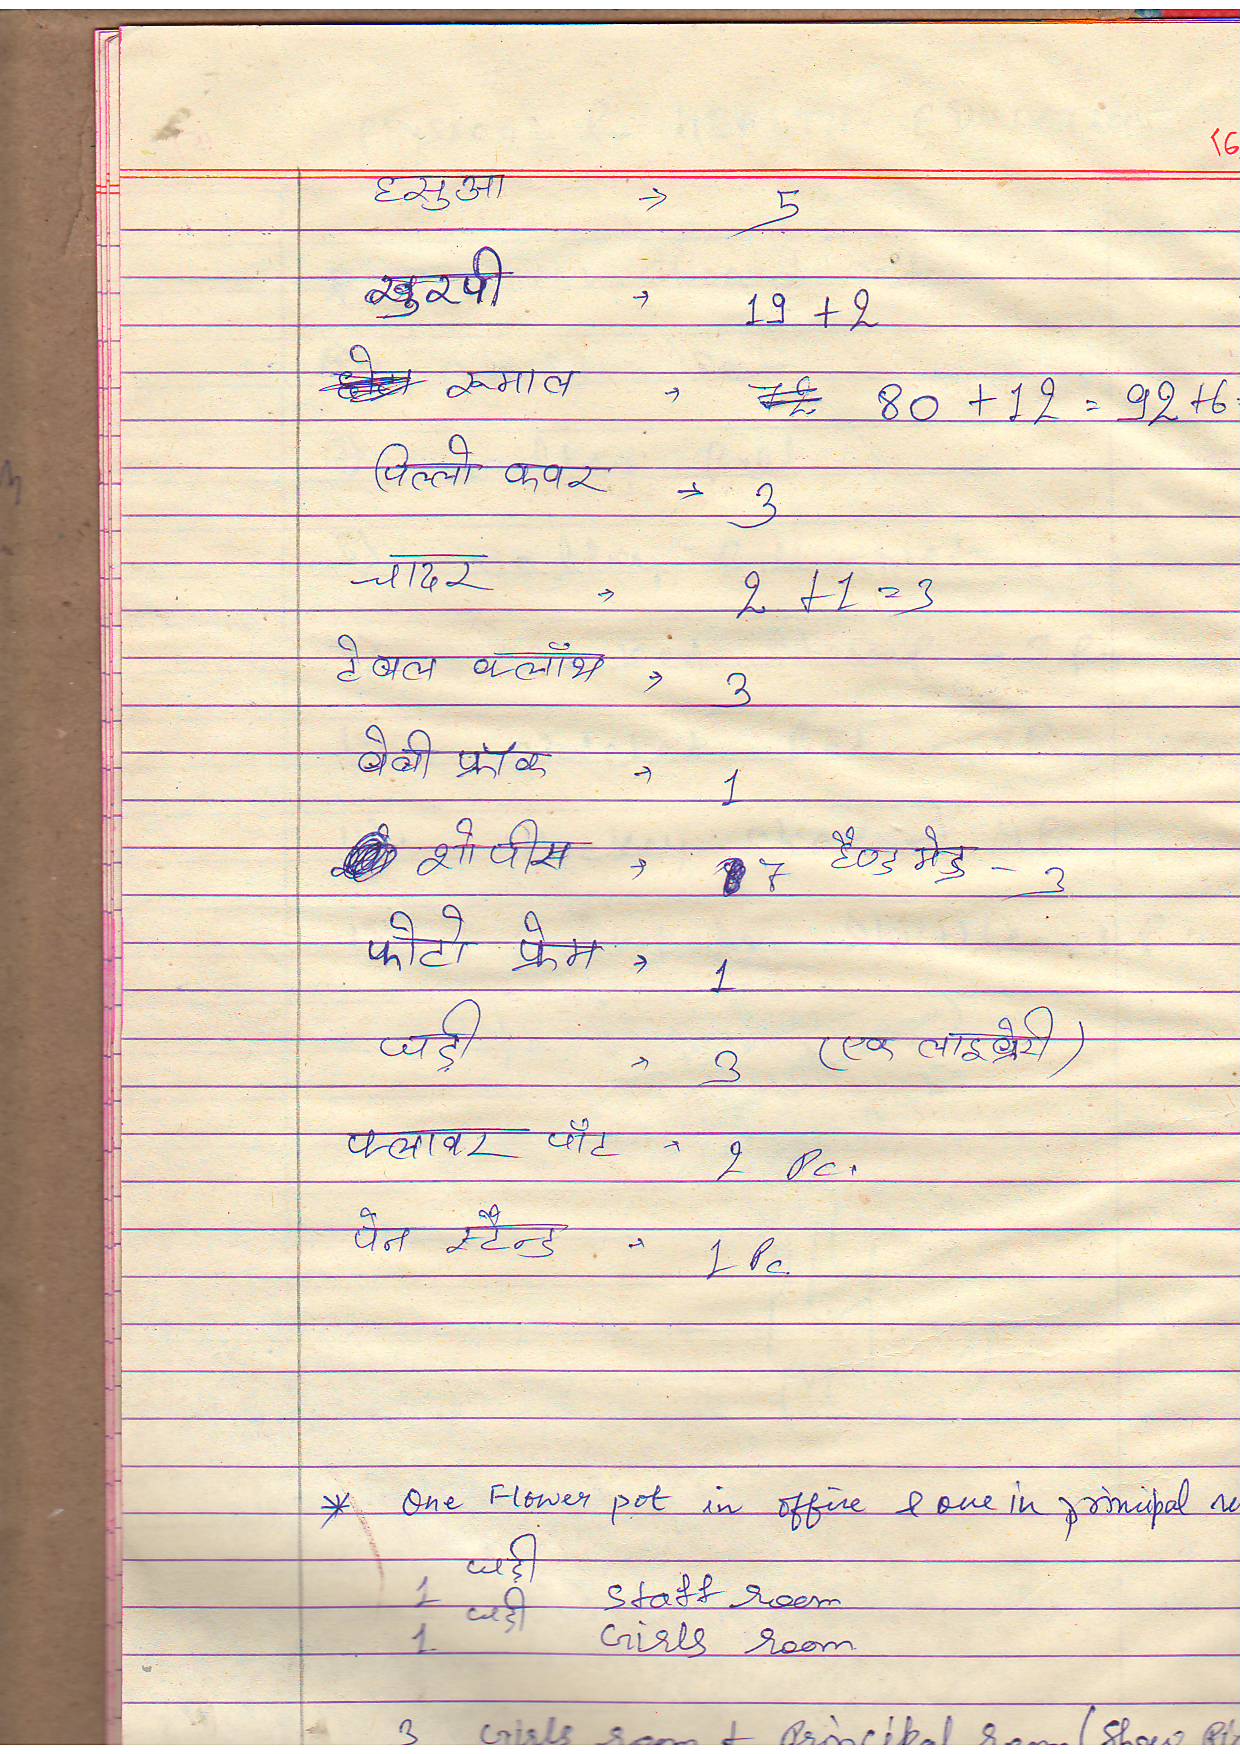 हसुआ → 5
खुरपी → 19 + 2
रूमाल → 80 + 12 = 92 + 6
पिल्लो कवर → 3
चादर → 2 + 1 = 3
टेबल क्लॉथ → 3
बेबी फ्रॉक → 1
शो पीस → 7 हैण्ड मेड - 3
फोटो फ्रेम → 1
घड़ी → 3 (एक लाइब्रेरी)
फ्लावर पॉट → 2 Pc.
पेन स्टैन्ड → 1 Pc.
* One Flower pot in office & one in principal
1 घड़ी Staff room
1 घड़ी Girls room
3 Girls room + Principal room (Show